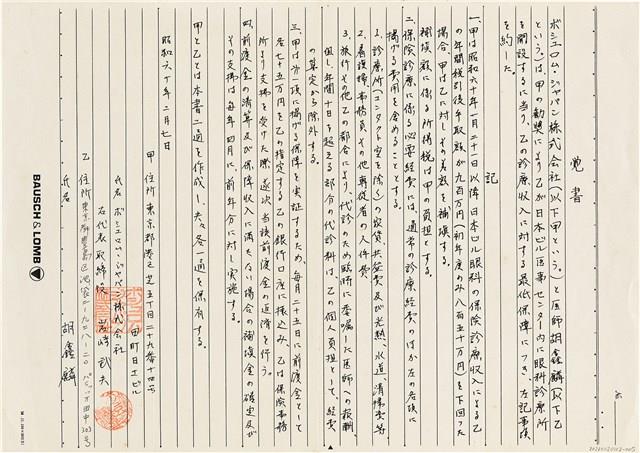 覚書
ボシュロム・ジャパン株式会社(以下甲という)と医師胡鑫麟(以下乙
という)は、甲の勧奨により乙が日本ビル医事センター内に眼科診療所
を開設するに当り、乙の診療収入に対する最低保障につき、左記事項
を約した。
記
一、甲は昭和六十年一月二十日以降日本ビル眼科の保険診療収入による乙
の年間税引後年取額が九百万円(初年度のみ八百五十万円)を下回った
場合、甲は乙に対しその差額を補填する。
補填額に係る所得税は甲の負担とする。
二、保険診療に係る必要経費には、通常の診療経費のほか左の各項に
掲げる費用を含めることとする。
1、診療所(コンタクト室を除く)の家賃、共益費及び光熱、水道、清掃費等
2、看護婦、事務員、その他専従者の人件費
3、旅行その他乙の都合により、代診のため臨時に委嘱した医師への報酬
但し、年間十日を超える部分の代診料は、乙の個人負担として、経費
の算定から除外する。
三、甲は第一項に掲げる保障を実証するため、毎月二十五日に前渡金として
金七十五万円を乙の指定する乙の銀行口座に振込み、乙は保険事務
所より支払を受けた際、逐次当該前渡金の返済を行う。
四、前渡金の清算及び保障収入に満たない場合の補填金の確定及び
その支払は毎年四月に、前年分に対し実施する。
甲と乙とは本書二通を作成し、夫々各一通を保有する。
昭和六十年二月七日
甲 住所 東京都港区芝五丁目二十九番十四号
田町日工ビル
氏名 ボシュロム・ジャパン株式会社
右代表取締役 岩崎武夫
乙 住所 東京都豊島区池袋二-九二八-二〇 田中303号
氏名 胡鑫麟
BAUSCH & LOMB